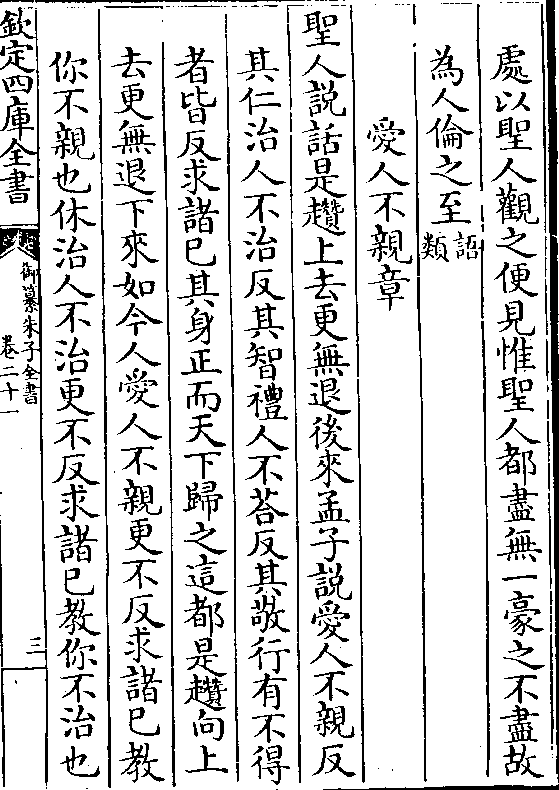 處以聖人觀之便見惟聖人都盡無一豪之不盡故
為人倫之至語類
愛人不親章
聖人說話是趲上去更無退後來孟子說愛人不親反
其仁治人不治反其智禮人不荅反其敬行有不得
者皆反求諸己其身正而天下歸之這都是趲向上
去更無退下來如今人愛人不親更不反求諸己教
你不親也休治人不治更不反求諸己教你不治也
欽定四庫全書
御纂朱子全書
卷二十一
三